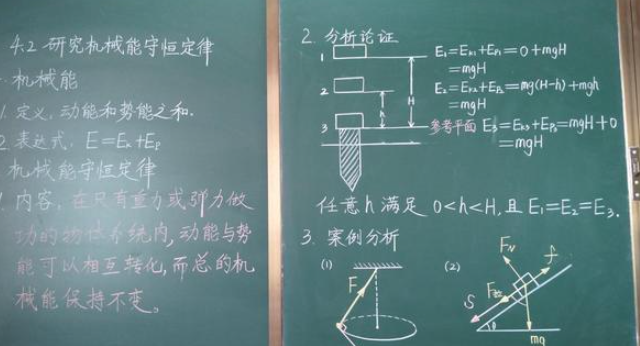 4.2 研究机械能守恒定律
一.机械能
1. 定义. 动能和势能之和.
2. 表达式. E=Eₖ+Eₚ
机械能守恒定律
1. 内容. 在只有重力或弹力做
功的物体系统内, 动能与势
能可以相互转化, 而总的机
械能保持不变。
2. 分析论证
1
E₁=Eₖ₁+Eₚ₁=0+mgH
=mgH
2
E₂=Eₖ₂+Eₚ₂=mg(H-h)+mgh
=mgH
h
H
3
参考平面 E₃=Eₖ₃+Eₚ₃=mgH+0
=mgH
任意h满足 0<h<H, 且 E₁=E₂=E₃.
3. 案例分析
(1)
F
(2)
F_N
f
S
θ
mg